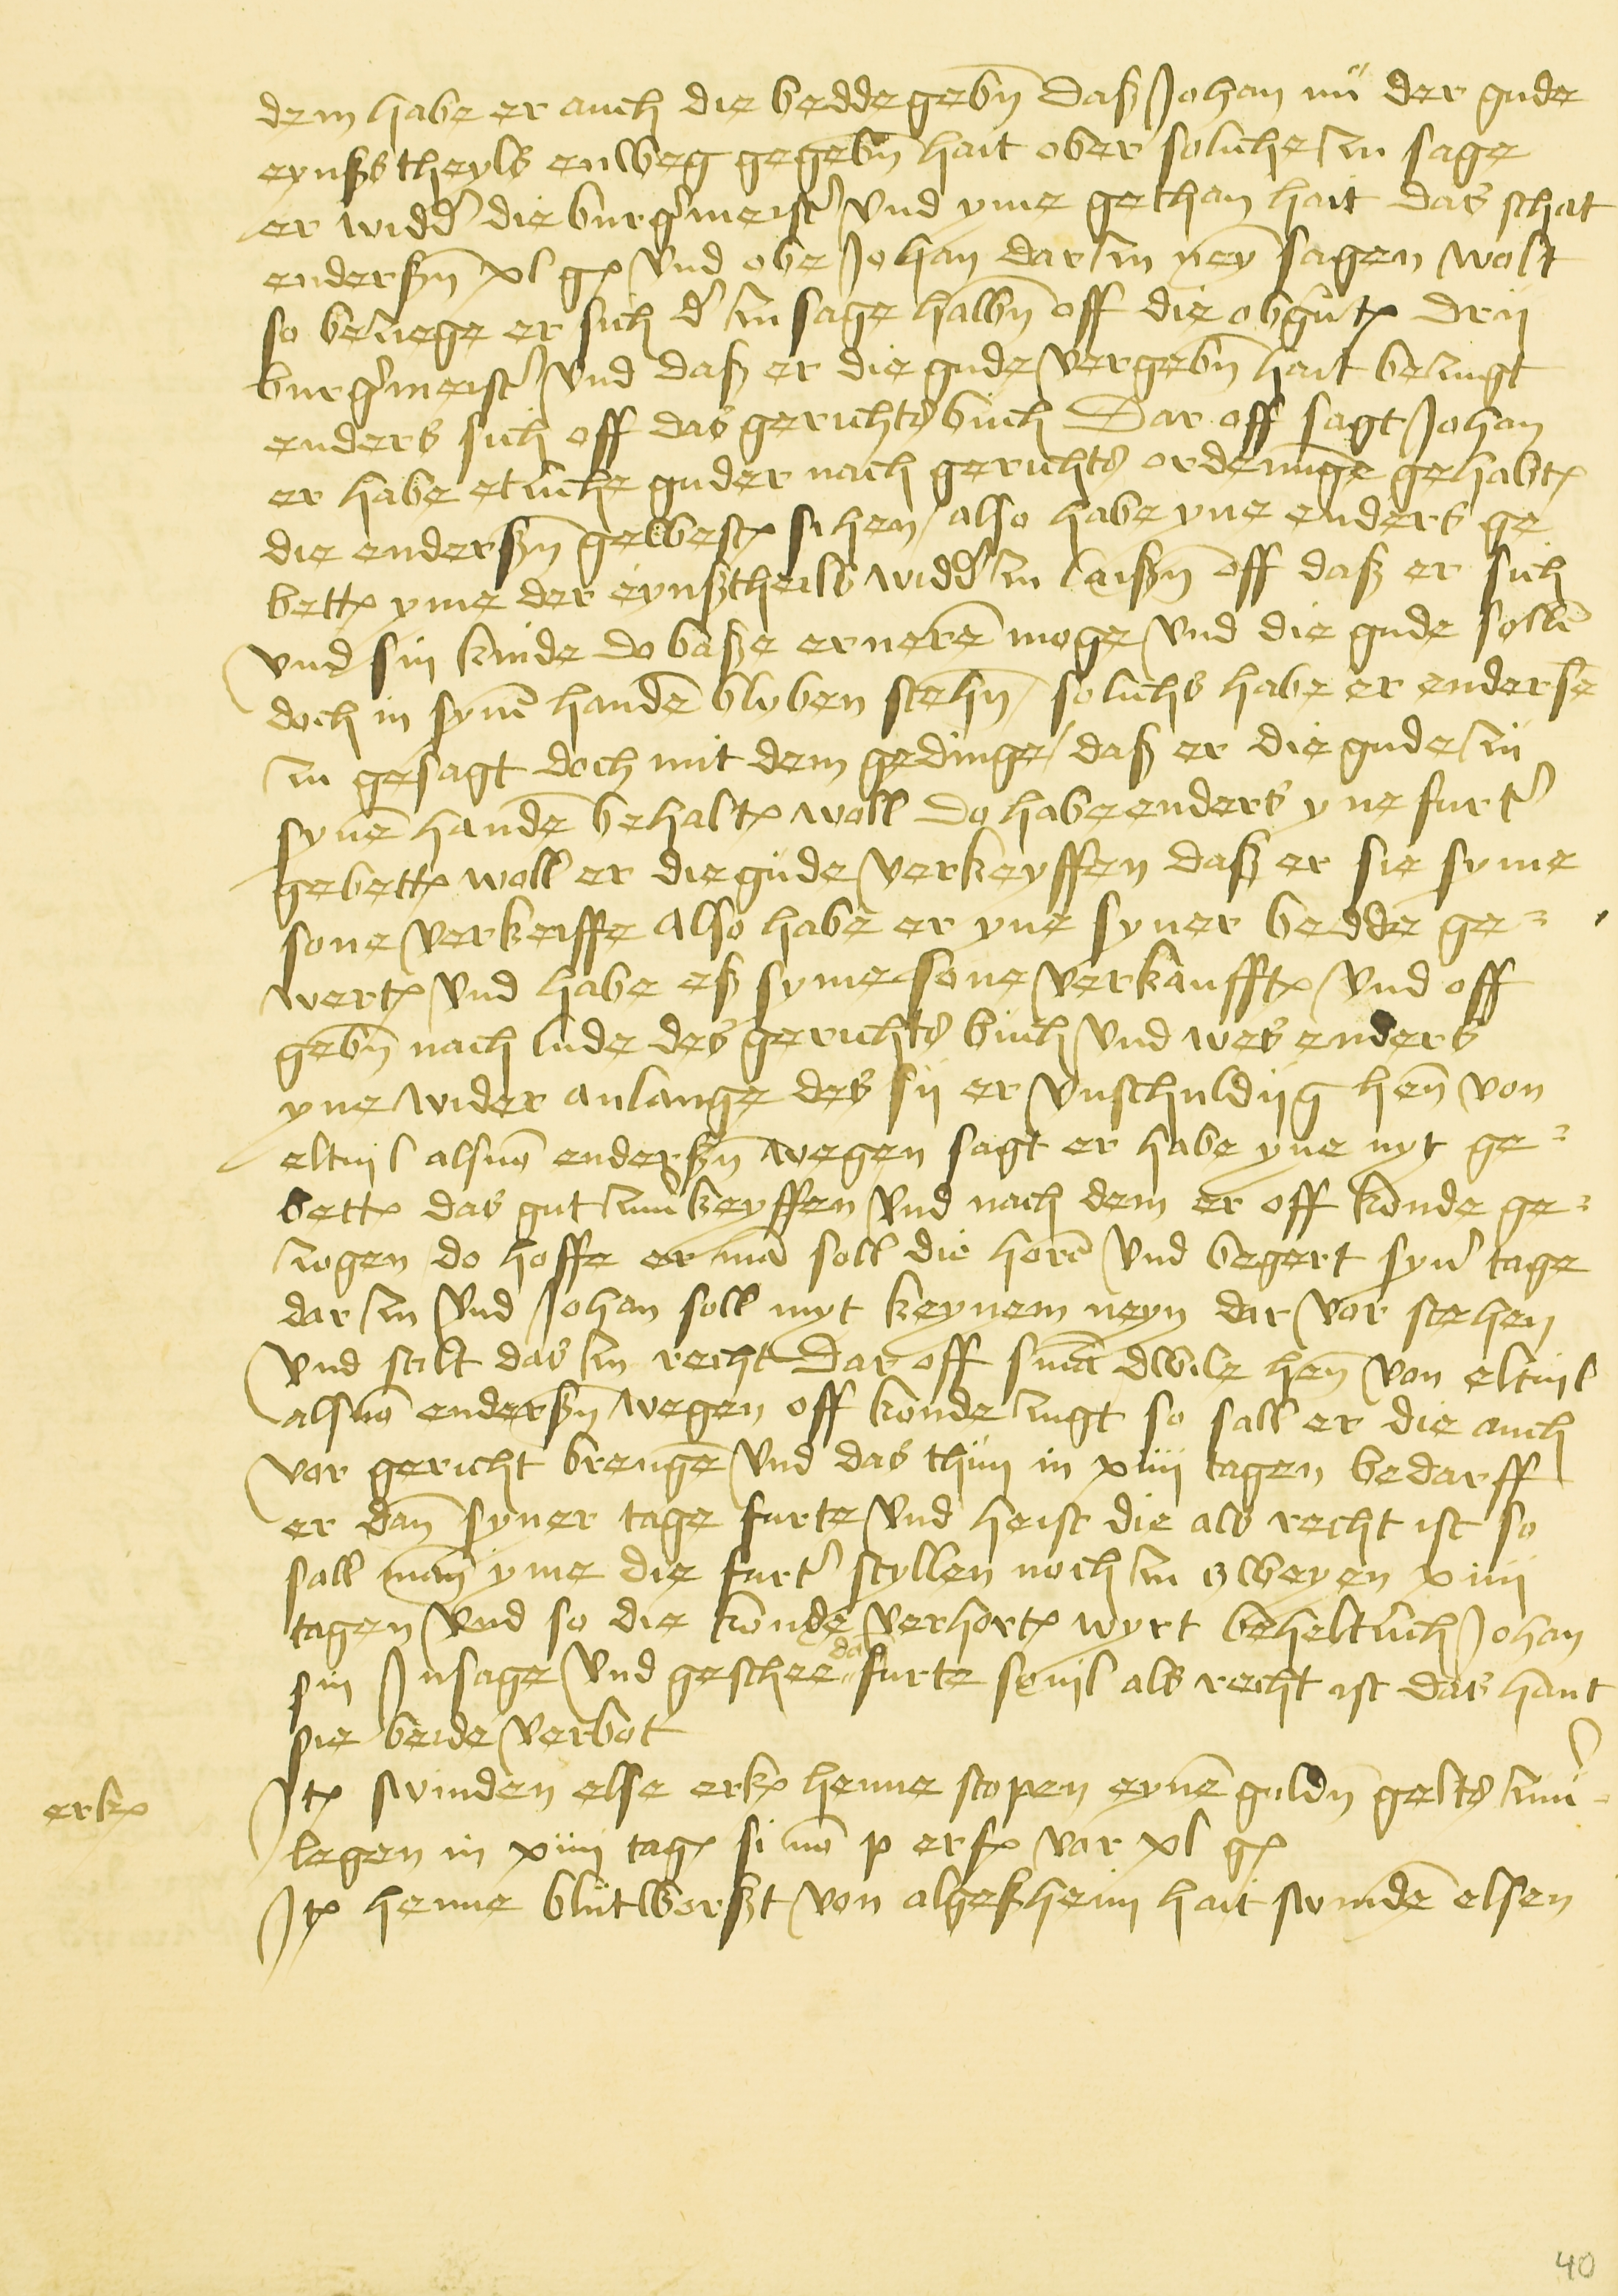 dem habe er auch die bedde gebn̄ daß Johan nü der gude
eynßs theyls enweg gegebn̄ hait ober soliche zu sage
er widd' die burg'meist' vnd yme gethan hait das schat
enderßn̄ xl gℓ vnd obe Johan dar zu ney sagen wolt
so beziege er sich d' zu sage halbn̄ off die obgn̄tℓ drij
burg'meist' vnd daß er die gude vergebn̄ hait bezugt
enders sich off das gerichts buch Dar off sagt Johan
er habe etliche guder nach gerichts ordenūge gehabtℓ
die enderßn̄ gewestℓ sihen / also habe yne enders ge
bettℓ yme der eynßtheils widd' zu laißn̄ off daß er sich
vnd sin kinde do baße ernerē moge vnd die gude sollē
doch in synē handē blyben stehn̄ / solichs habe er endersē
zu gesagt doch mit dem gedinge / daß er die gude zu
synē handē behaltℓ woll Do habe enders yne furt'
gebettℓ woll er die gude verkeyffen daß er sie syme
sone verkeiffe also habe er yne syner bedde ge=
wertℓ vnd habe eß syme sone verkaufftℓ vnd off
gebn̄ nach lude des gerichts buch vnd wes enders
yne wider anlange des sij er vnschuldijg hen̄ von
eltuil als mō enderßn̄ wegen sagt er habe yne nyt ge=
bettℓ das gut zuu'keyffen vnd nach dem er off konde ge=
zogen / do hoffe er mā soll die horē vnd begert syn' tage
dar zu vnd Johan soll myt keynem neyn dar vor stehen
vnd stilt das zu recht Dar off sniā dwile hen̄ von eltuil
als mō enderßn̄ wegen off konde zugt so sall er die auch
vor gericht brengē vnd das thun in xiiii tagen bedarff
er dan̄ syner tage furte vnd heist die als recht ist so
sall man̄ yme die furt' styllen noch zu zweyen xiiii
tagen vnd so die konde verhortℓ wyrt beheltlich Johan
sin Insage vnd geschee da furte souil als recht ist das hant
sie beide verbot
erkℓ
Itℓ swinden else erkℓ henne stopen eynē guldn̄ gelts zuu'=
legen in xiiii tagℓ si nō p erfℓ vor xl gℓ
Itℓ henne blutworßt von algeßheim hait swindē elsen
40